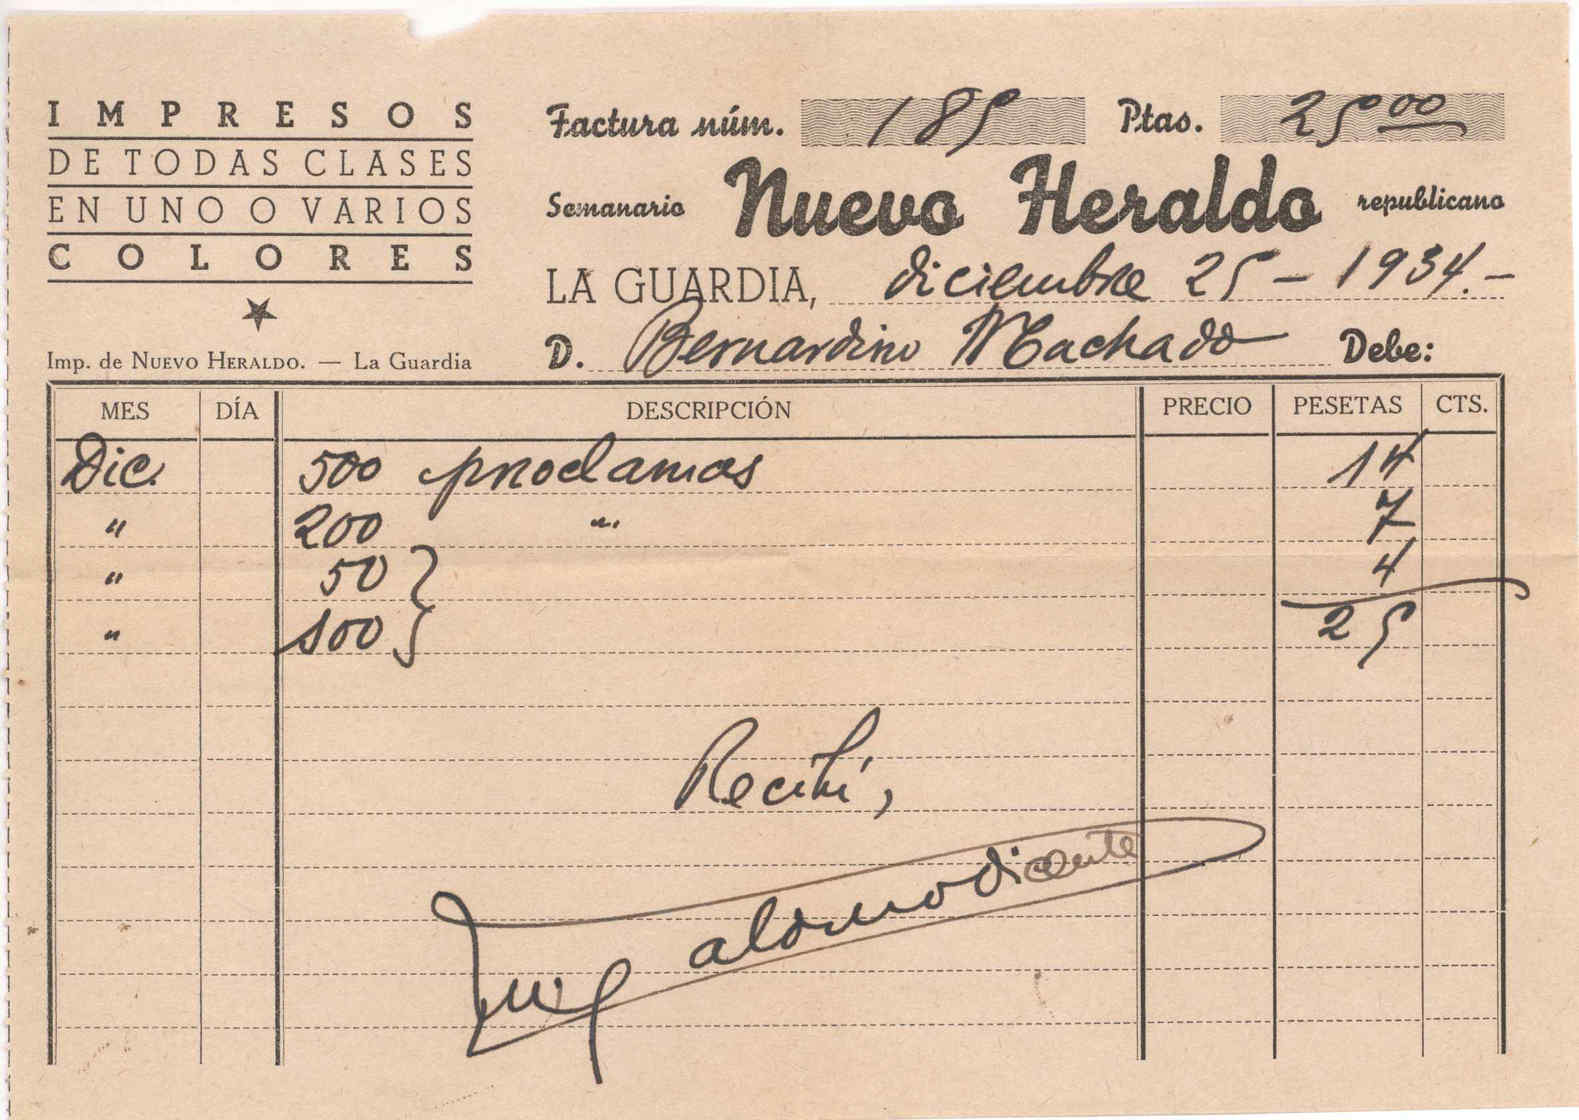 IMPRESOS
DE TODAS CLASES
EN UNO O VARIOS
COLORES
Imp. de NUEVO HERALDO. — La Guardia
Factura núm. 185 Ptas. 25 00
Semanario Nuevo Heraldo republicano
LA GUARDIA, diciembre 25 - 1934.-
D. Bernardino Machado Debe:
MES DÍA DESCRIPCIÓN PRECIO PESETAS CTS.
Dic. 500 proclamas 14
" 200 " 7
" 50 4
" 100 25
Recibí,